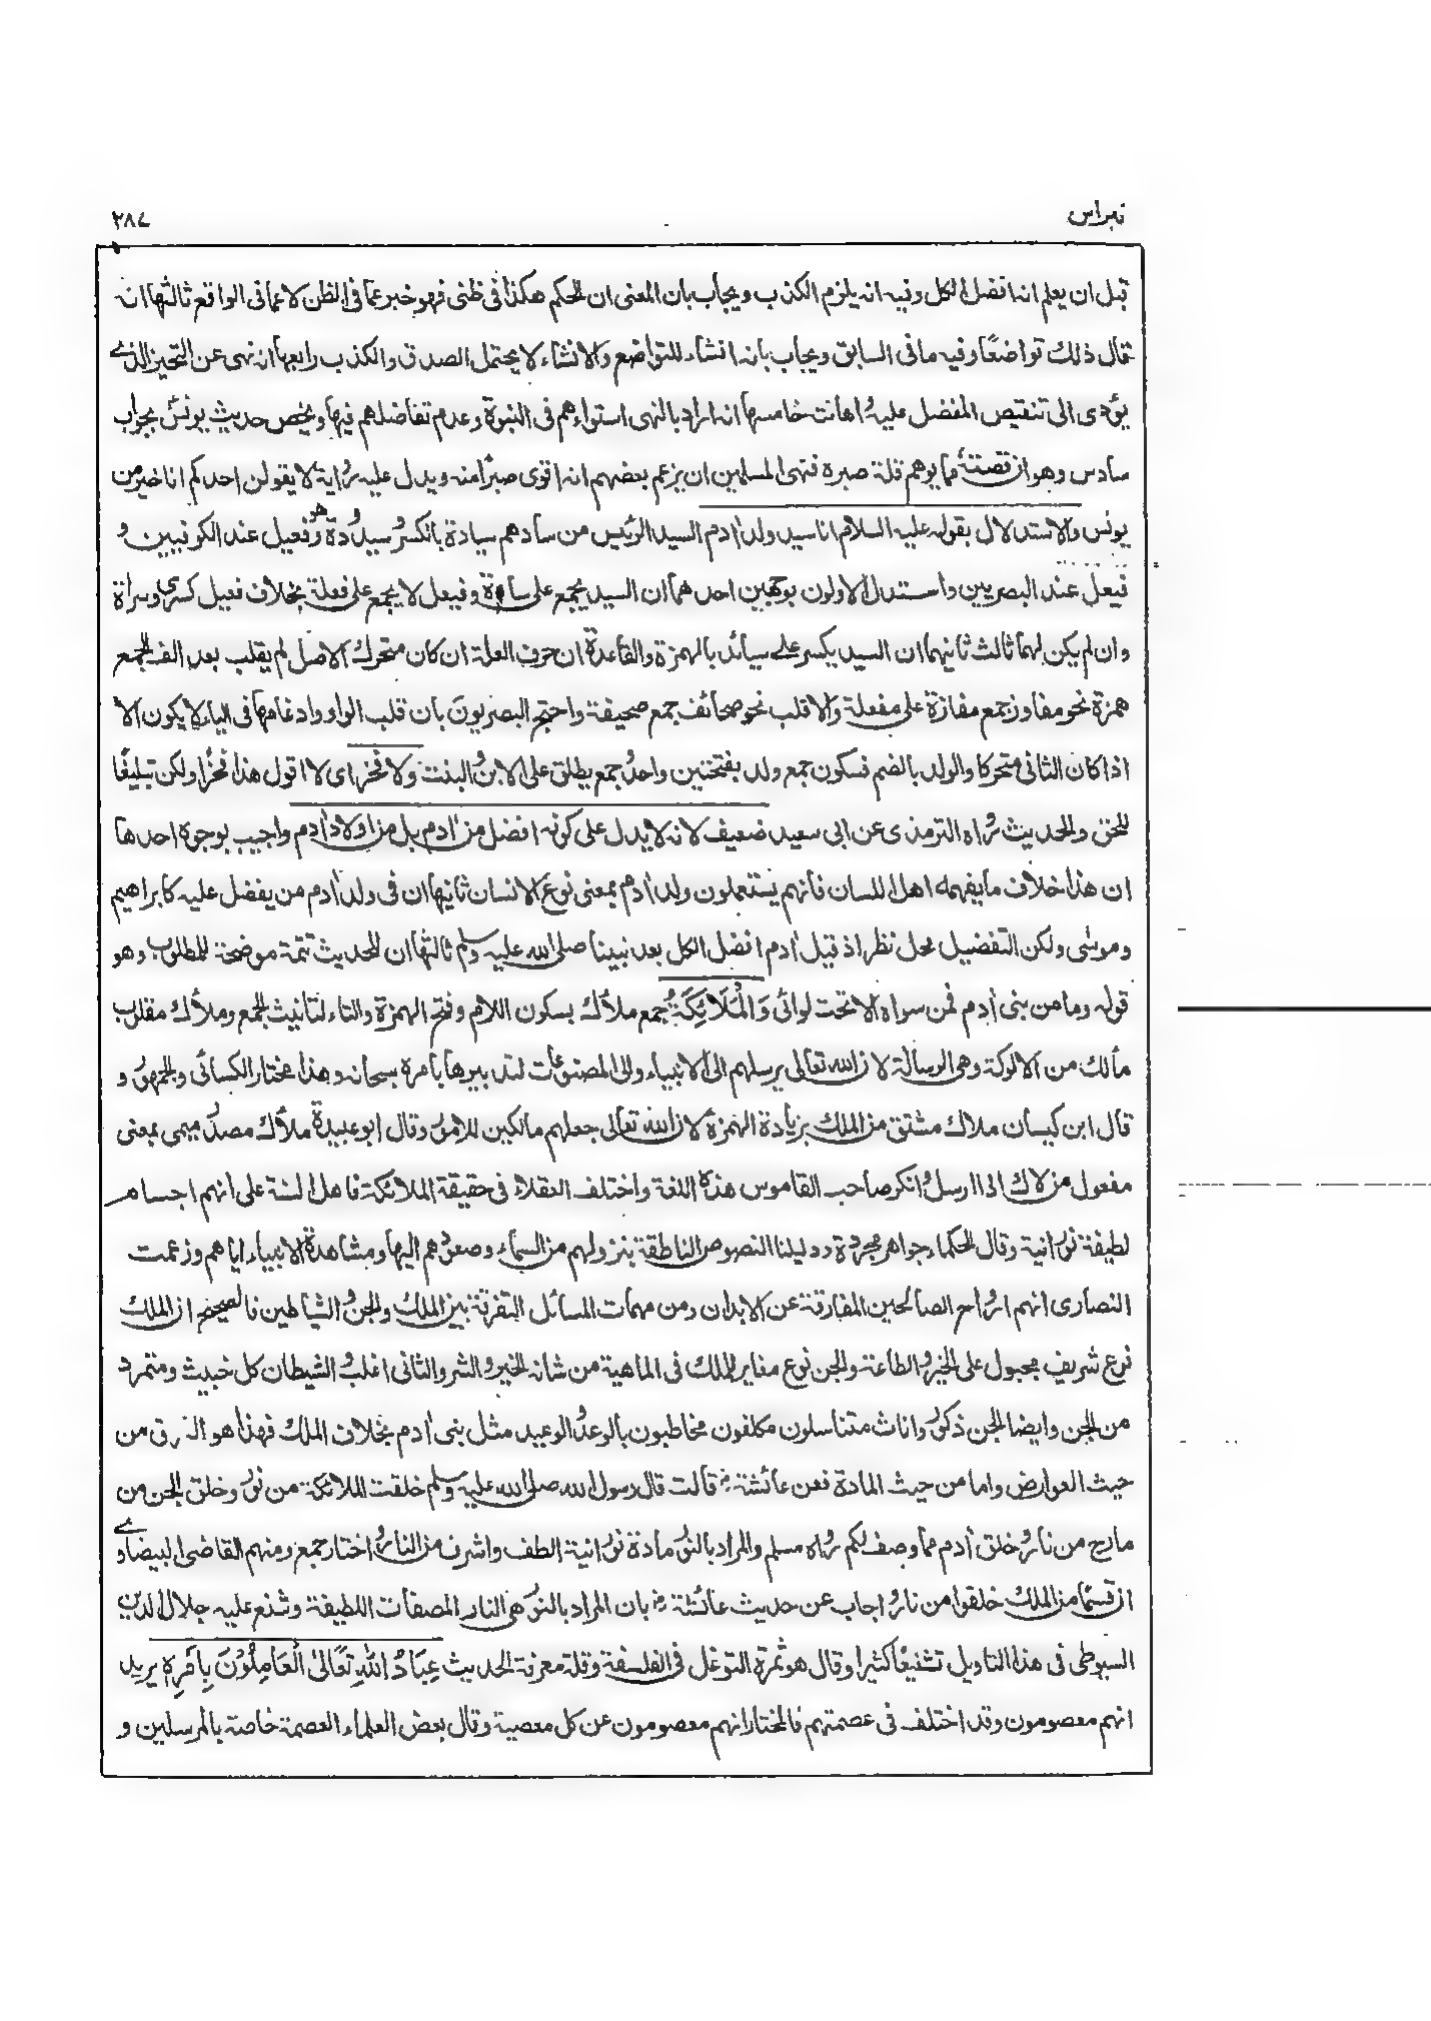 نبراس
٢٨٧
قبل ان يعلم انه افضل الكل وفيه انه يلزم الكذب ويجاب بان المعنى ان الحكم هكذا فى ظنى فهو خبر عما فى الظن لا عما فى الواقع ثالثها انه
قال ذلك تواضعًا وفيه ما فى السابق ويجاب بانه انشاء للتواضع والانشاء لا يحتمل الصدق والكذب رابعها انه نهى عن التخيير الذے
يؤدى الى تنقيص المفضل عليه واهانت خامسها انه اراد بالنهى استواءهم فى النبوة وعدم تفاضلهم فيها ويخص حديث يونس بجواب
سادس وهو ان قصته مما يوهم قلة صبره فنهى المسلمين ان يزعم بعضهم انه اقوى صبرًا منه ويدل عليه رواية لا يقولن احدكم انا خير من
يونس والاستدلال بقوله عليه السلام انا سيد ولد اٰدم السيد الرئيس من سادهم سيادة بالكسر وسيدودة وهو فعيل عند الكوفيين و
فيعل عند البصريين واستدل الاولون بوجهين احدهما ان السيد يجمع على سادة وفيعل لا يجمع على فعلة بخلاف فعيل كسرى وسراة
وان لم يكن لهما ثالث ثانيهما ان السيد يكسر على سيائد بالهمزة والقاعدة ان حرف العلة ان كان متحرك الاصل لم يقلب بعد الف الجمع
همزة نحو مفاوز جمع مفازة على مفعلة والا قلب نحو صحائف جمع صحيفة واحتج البصريون بان قلب الواو وادغامها فى الياء لا يكون الا
اذا كان الثانى متحركا والولد بالضم فسكون جمع ولد بفتحتين واحد وجمع يطلق على الابن والبنت ولا فخر اى لا اقول هذا فخرًا ولكن تبليغًا
للحق والحديث رواه الترمذى عن ابى سعيد ضعيف لانه لا يدل على كونه افضل من اٰدم بل من اولاد اٰدم واجيب بوجوه احدها
ان هذا خلاف ما يفهمه اهل اللسان فانهم يستعملون ولد اٰدم بمعنى نوع الانسان ثانيها ان فى ولد اٰدم من يفضل عليه كابراهيم
وموسٰى ولكن التفضيل محل نظر اذ قيل اٰدم افضل الكل بعد نبينا صلى الله عليه وسلم ثالثها ان للحديث تتمة موضحة للمطلوب وهو
قوله وما من بنى اٰدم فمن سواه الا تحت لوائى وَالْمَلَائِكَةُ جمع ملأك بسكون اللام وفتح الهمزة والتاء لتانيث الجمع وملأك مقلوب
مألك من الالوكة وهى الرسالة لان الله تعالى يرسلهم الى الانبياء والى المصنوعات لتدبيرها بامره سبحانه وهذا مختار الكسائى والجمهور و
قال ابن كيسان ملاك مشتق من الملك بزيادة الهمزة لان الله تعالى جعلهم مالكين للامور وقال ابو عبيدة ملأك مصدر ميمى بمعنى
مفعول من لاك اذا ارسل وانكر صاحب القاموس هذه اللغة واختلف العقلاء فى حقيقة الملائكة فاهل السنة على انهم اجسام
لطيفة نورانية وقال الحكماء جواهر مجردة ودليلنا النصوص الناطقة بنزولهم من السماء وصعودهم اليها ومشاهدة الانبياء اياهم وزعمت
النصارى انهم ارواح الصالحين المفارقة عن الابدان ومن مهمات المسائل التفرقة بين الملك والجن والشياطين فالصحيح ان الملك
نوع شريف مجبول على الخير والطاعة والجن نوع مغاير للملك فى الماهية من شانه الخير والشر والثانى اغلب والشيطان كل خبيث ومتمرد
من الجن وايضا الجن ذكور واناث متناسلون مكلفون مخاطبون بالوعد والوعيد مثل بنى اٰدم بخلاف الملك فهذا هو الفرق من
حيث العوارض واما من حيث المادة فعن عائشة رض قالت قال رسول الله صلى الله عليه وسلم خلقت الملائكة من نور وخلق الجن من
مارج من نار وخلق اٰدم مما وصف لكم رواه مسلم والمراد بالنور مادة نورانية الطف واشرف من النار واختار جمع ومنهم القاضى البيضاوے
ان قسمًا من الملك خلقوا من نار واجاب عن حديث عائشة رض بان المراد بالنور هى النار المصفات اللطيفة وشنع عليه جلال الدين
السيوطى فى هذا التاويل تشنيعًا كثيرا وقال هو ثمرة التوغل فى الفلسفة وقلة معرفة الحديث عِبَادُ اللهِ تَعَالىٰ الْعَامِلُوْنَ بِاَمْرِهٖ يريد
انهم معصومون وقد اختلف فى عصمتهم فالمختار انهم معصومون عن كل معصية وقال بعض العلماء العصمة خاصة بالمرسلين و